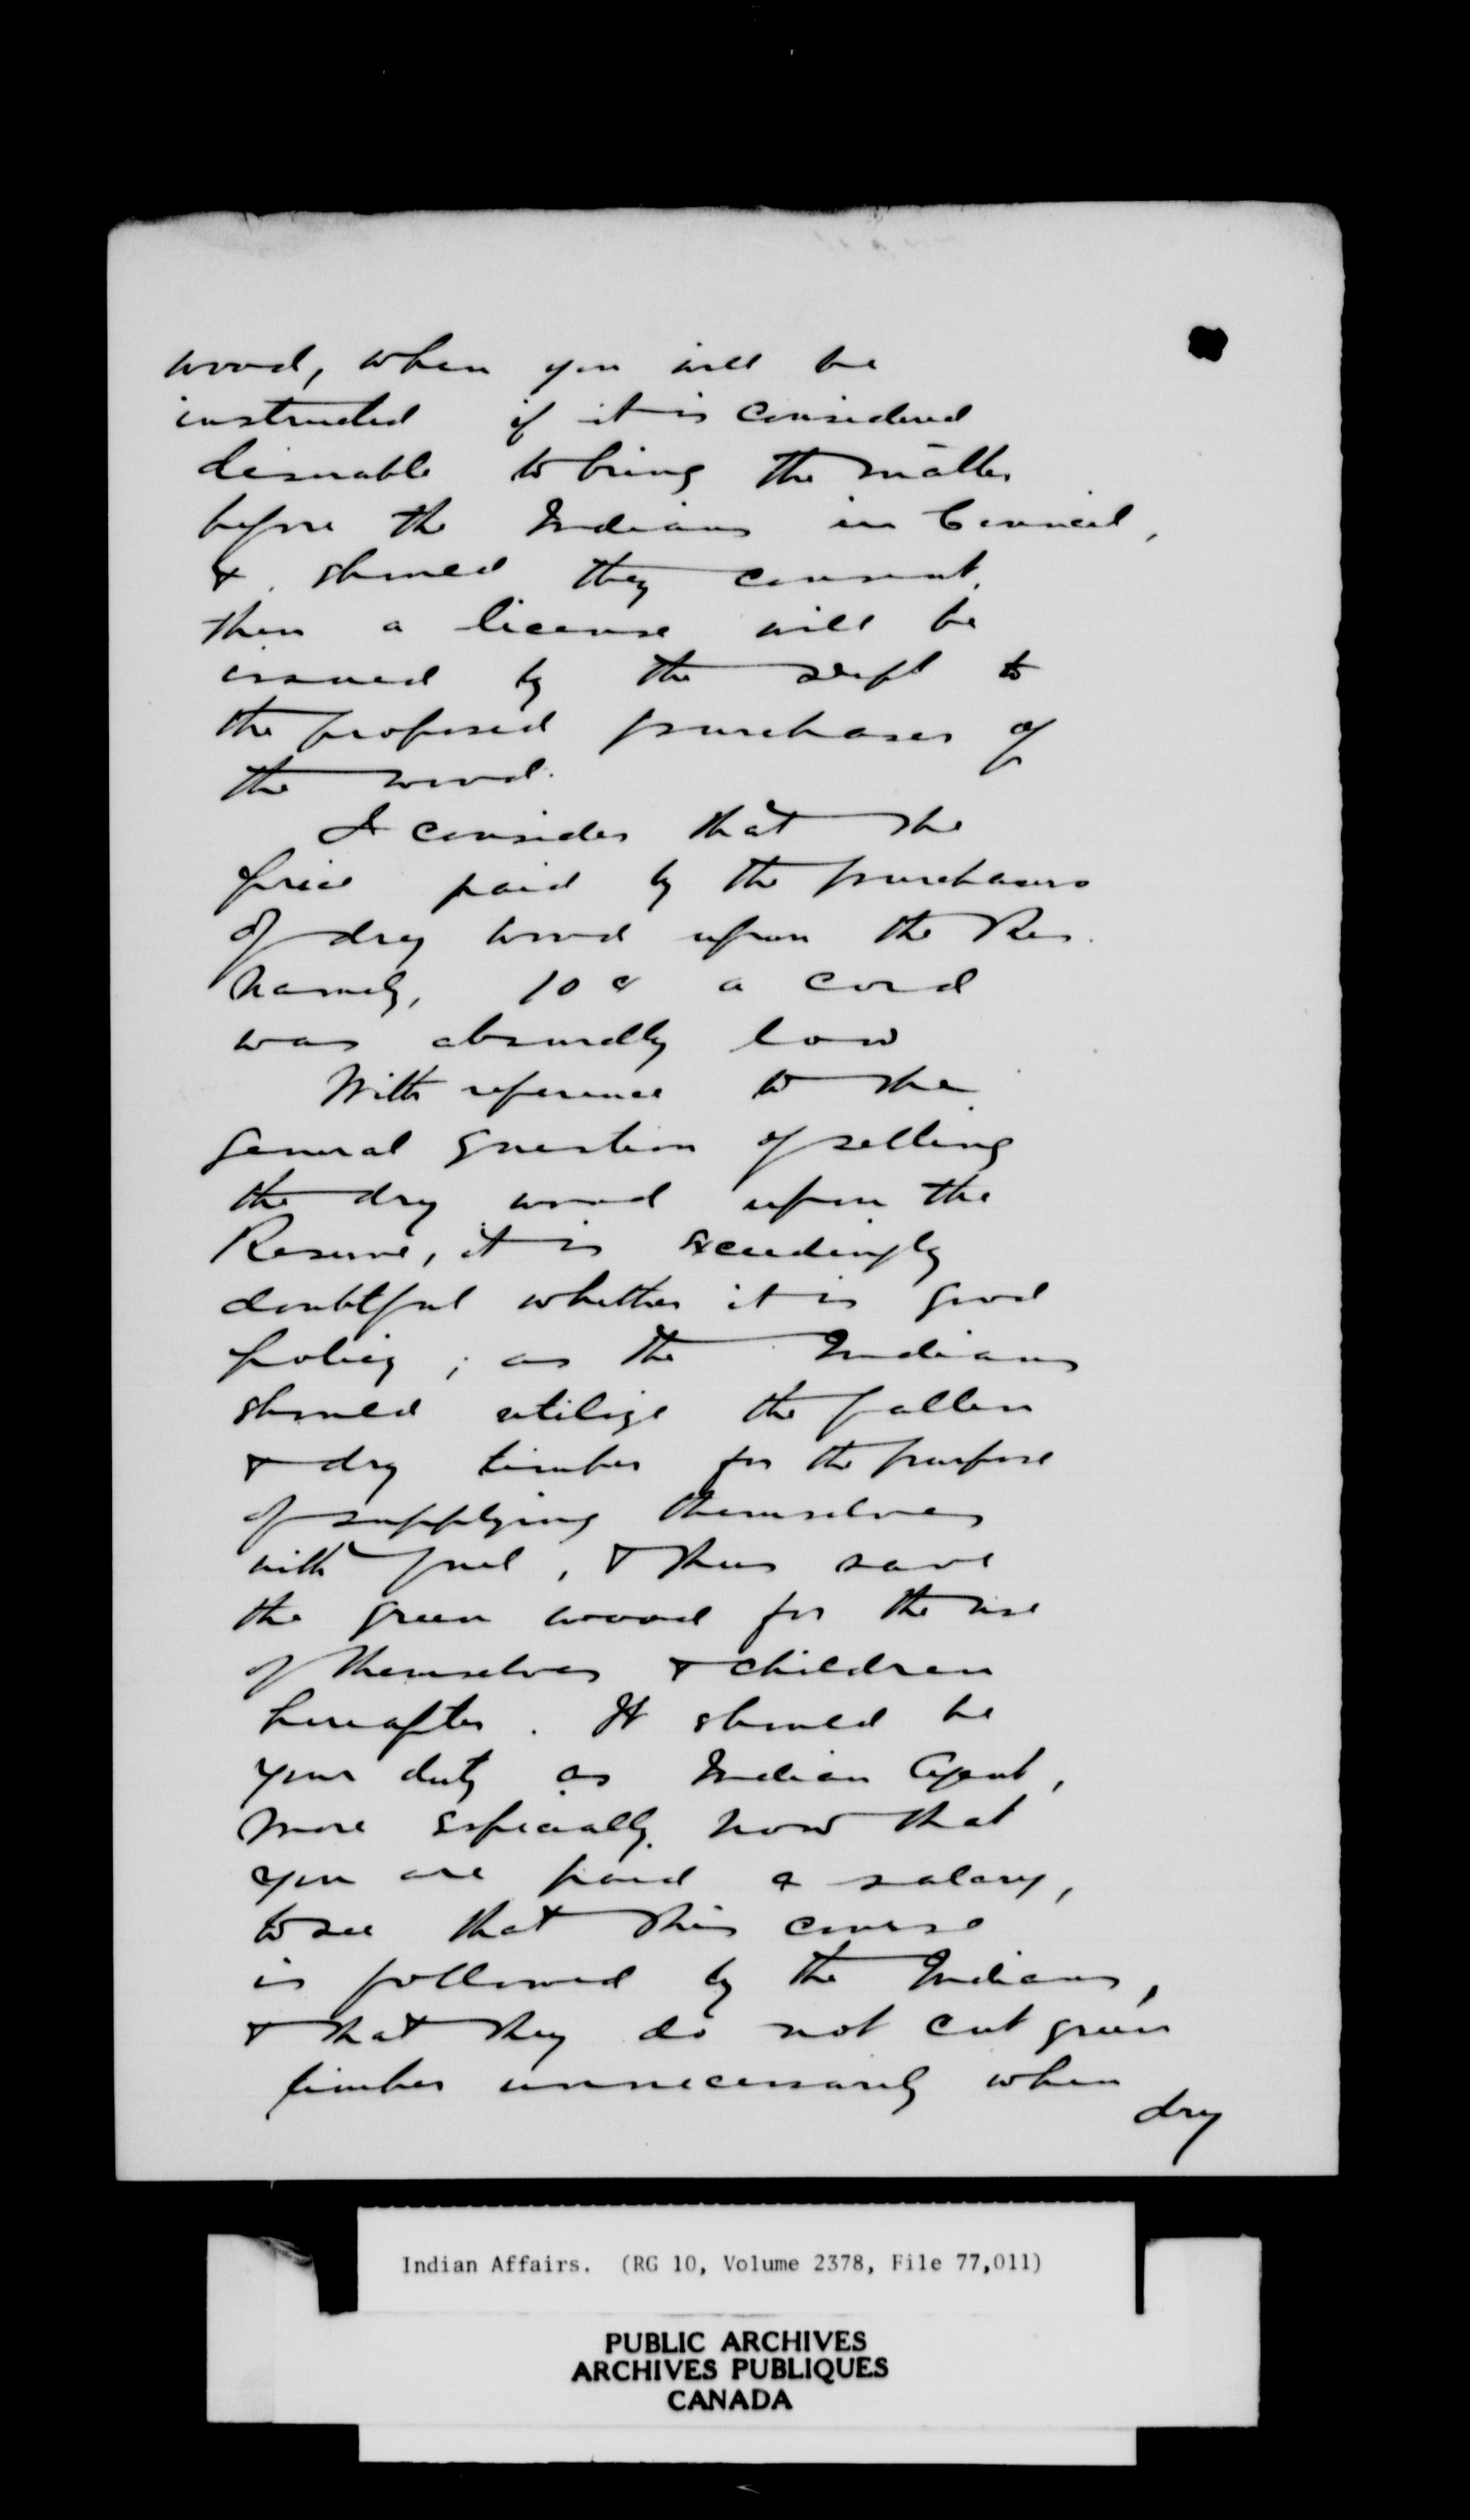 wood, when you will be
instructed if it is considered
desirable to bring the matter
before the Indians in Council,
& should they consent,
then a license will be
issued by the Dept to
the proposed purchaser of
the wood.
I consider that the
price paid by the purchasers
of dry wood upon the Res.
namely, 10 c a cord
was absurdly low
With reference to the
general question of selling
the dry wood upon the
Reserve, it is exceedingly
doubtful whether it is good
policy; as the Indians
should utilize the fallen
& dry timber for the purpose
of supplying themselves
with fuel, & thus save
the green wood for the use
of themselves & children
hereafter. It should be
your duty as Indian Agent,
more especially now that
you are paid a salary,
to see that this course
is followed by the Indians,
& that they do not cut green
timber unnecessarily when
dry
Indian Affairs. (RG 10, Volume 2378, File 77,011)
PUBLIC ARCHIVES
ARCHIVES PUBLIQUES
CANADA